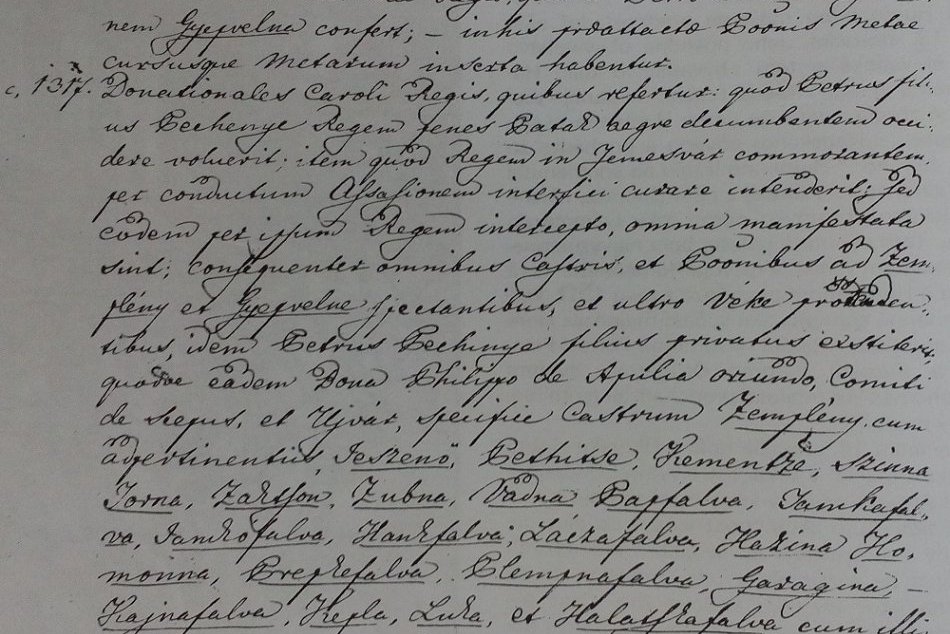 nem Gyepvelna confert; – in his praattactae Boonis Metae
cursusque Metarum inserta habentur.
c. 1317. Donationales Caroli Regis, quibus refertur: quod Petrus fili-
us Pechenye Regem penes Patak aegre decumbentem occi-
dere voluerit; item quod Regem in Temesvár commorantem
per conductum Assasionem interfici curare intenderit; sed
eodem per ipsum Regem intercepto, omnia manifestata
sint; consequenter omnibus Castris, et Boonibus ad Zem-
plény et Gyepvelne spectantibus, et ultro Véke protenden-
tibus, idem Petrus Pechinye filius privatus exstiterit,
quodve eadem Bona Philippo de Apulia oriundo, Comiti
de Scepus, et Ujvár, specifice Castrum Zemplény cum
adpertinentiis Jeszenö, Pethitse, Kementze, Szinna
Torna, Zaktson, Zubna, Vádna, Papfalva, Jamkafal-
va, Jankófalva, Hankfalva; Láczafalva, Hazina Ho-
monna, Prepkefalva, Plempnafalva, Garagina, –
Hajnafalva, Kepla, Luka, et Halatskafalva cum illi